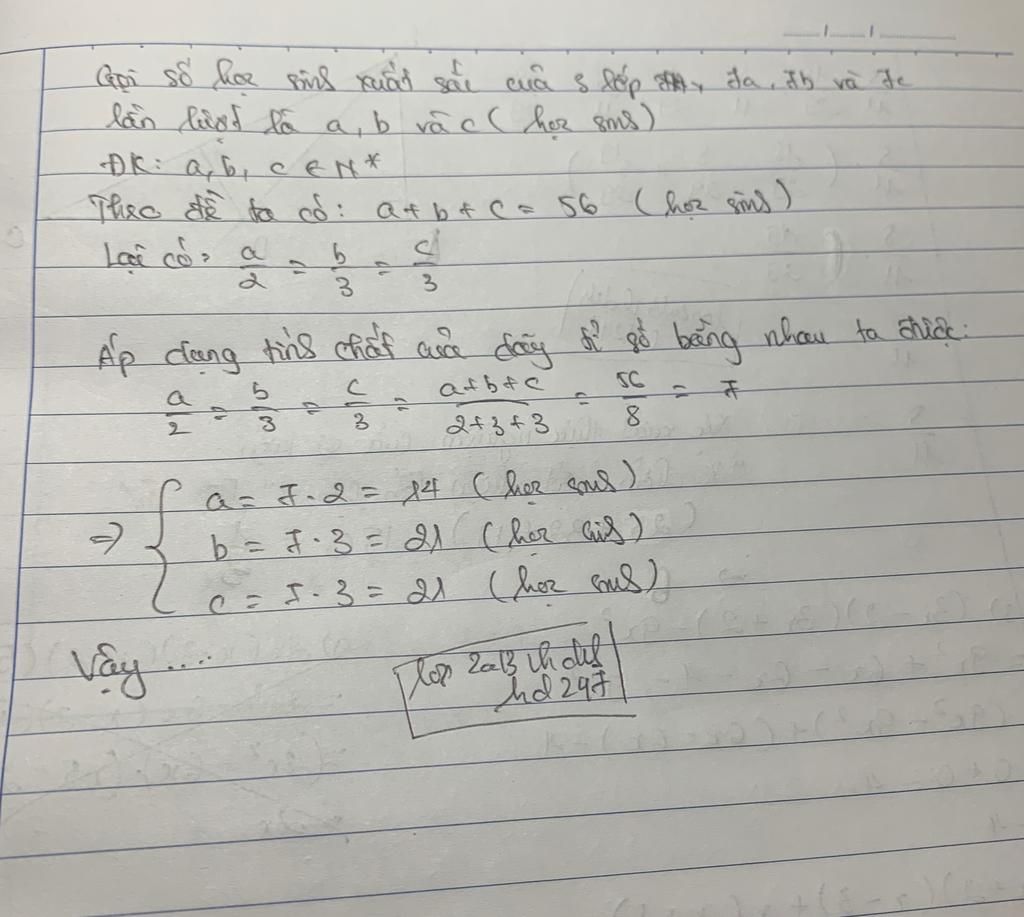 Gọi số học sinh xuất sắc của 3 lớp 7a, 7b và 7c
lần lượt là a, b và c ( học sinh )
ĐK: a, b, c ∈ N*
Theo đề ta có: a + b + c = 56 ( học sinh )
Lại có: a/2 = b/3 = c/3
Áp dụng tính chất của dãy tỉ số bằng nhau ta được:
a/2 = b/3 = c/3 = (a+b+c)/(2+3+3) = 56/8 = 7
⇒ { a = 7 · 2 = 14 ( học sinh )
b = 7 · 3 = 21 ( học sinh )
c = 7 · 3 = 21 ( học sinh )
Vậy ....
lop 2a13
hd247